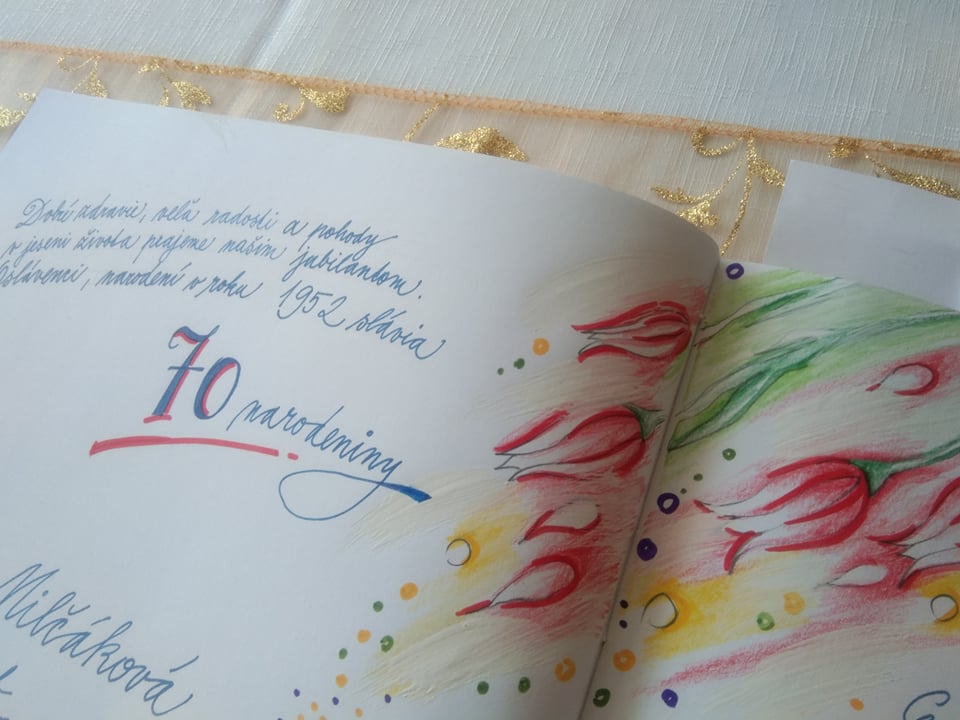 Dobré zdravie, veľa radosti a pohody
v jeseni života prajeme našim jubilantom.
Oslávenci, narodení v roku 1952 slávia
70 narodeniny
Milčáková